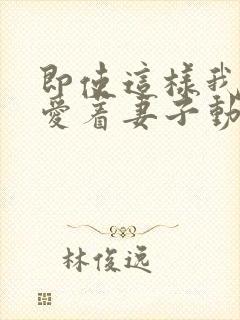 即使這樣我
愛着妻子動
林俊逸